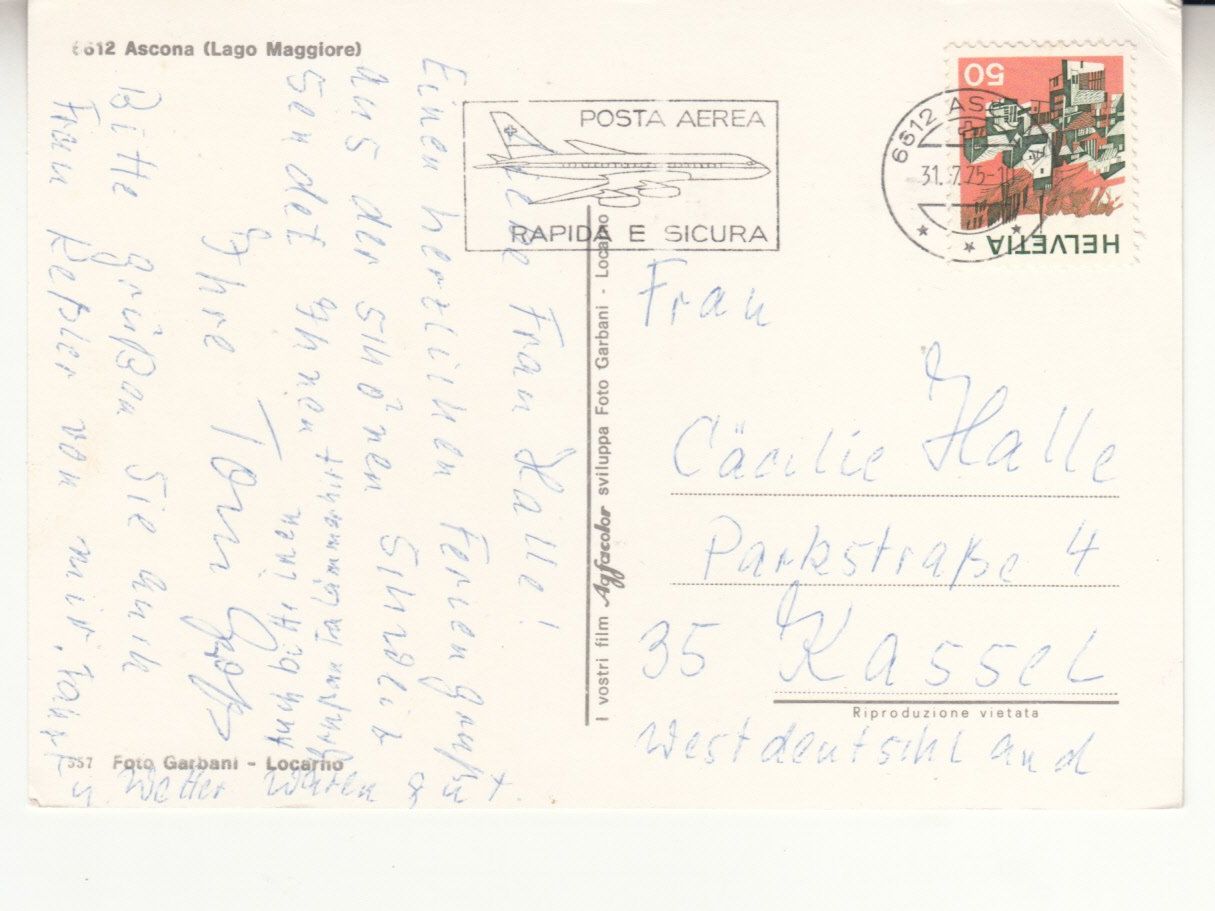 6612 Ascona (Lago Maggiore)
Liebe Frau Halle!
Einen herzlichen Feriengruß
aus der schönen Schweiz
sendet Ihnen
Ihre Toni
Auch bitte inen
Gruß an Fa
Bitte grüßen Sie auch
Frau Keßler von mir.
u. Wetter waren gut.
357 Foto Garbani - Locarno
I vostri film Agfacolor sviluppa Foto Garbani - Locarno
POSTA AEREA
RAPIDA E SICURA
6612 ASC
31. 7.75-1
50
HELVETIA
Frau
Cäcilie Halle
Parkstraße 4
35 Kassel
Riproduzione vietata
Westdeutschland